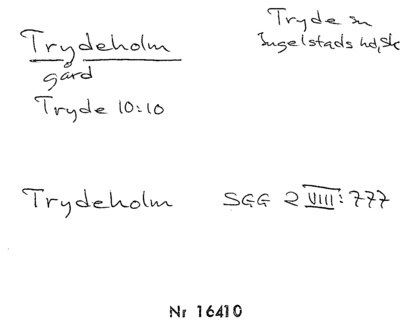 Trydeholm
gård
Tryde 10:10
Tryde sn
Ingelstads hd, Sk
Trydeholm SGG 2 VIII: 777
Nr 16410